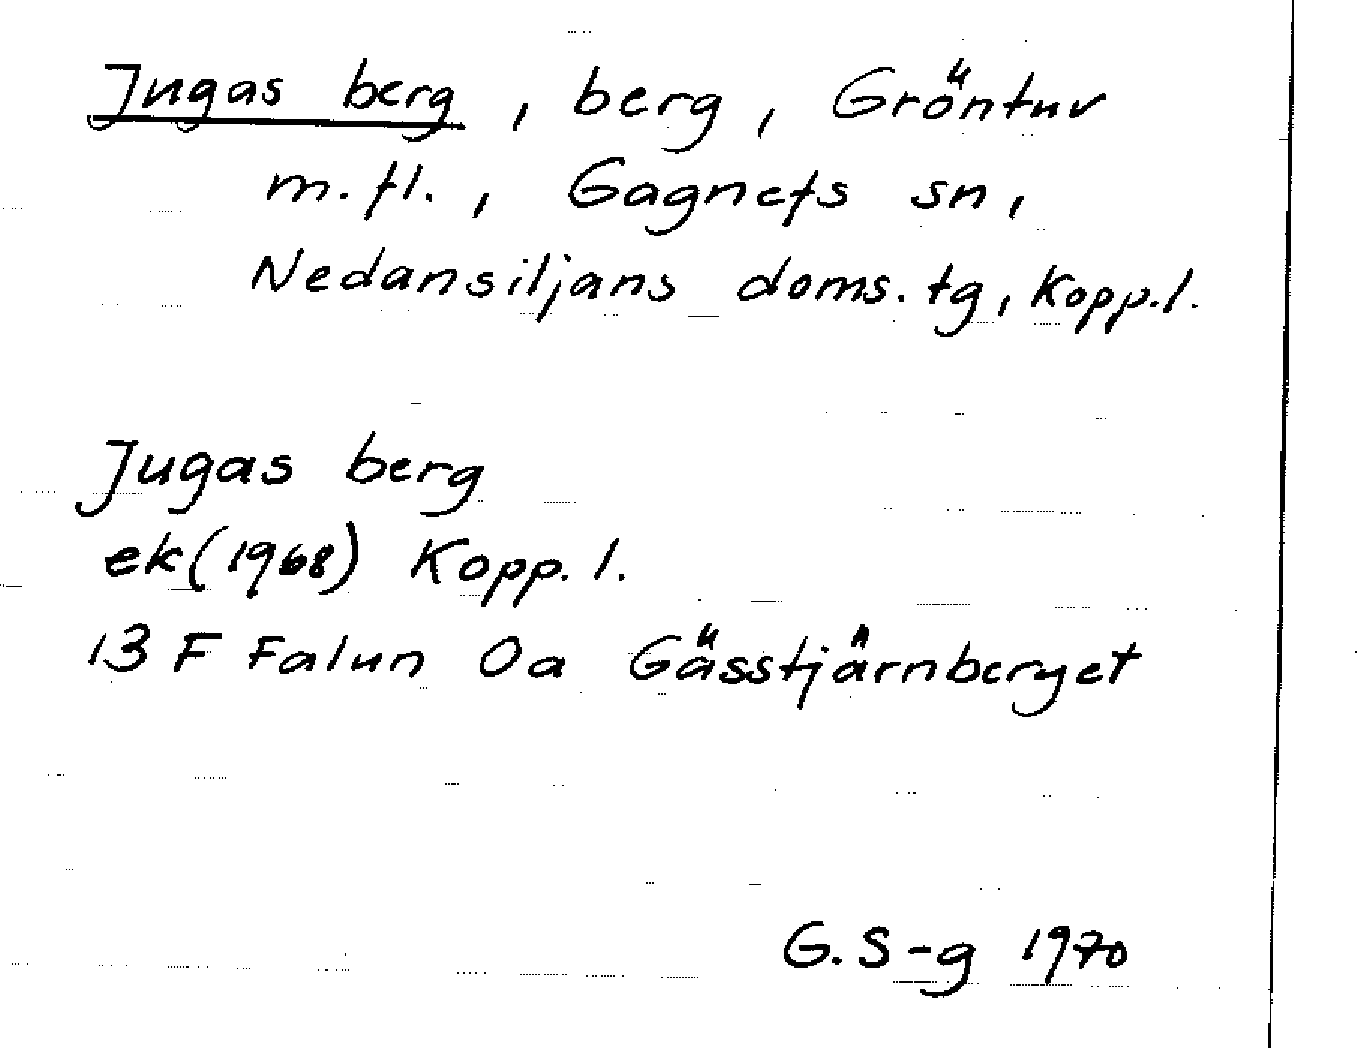 Jugas berg, berg, Gröntuv
m.fl., Gagnefs sn,
Nedansiljans doms.tg, Kopp.l.
Jugas berg
ek(1968) Kopp.l.
13 F Falun 0a Gässtjärnberget
G.S-g 1970